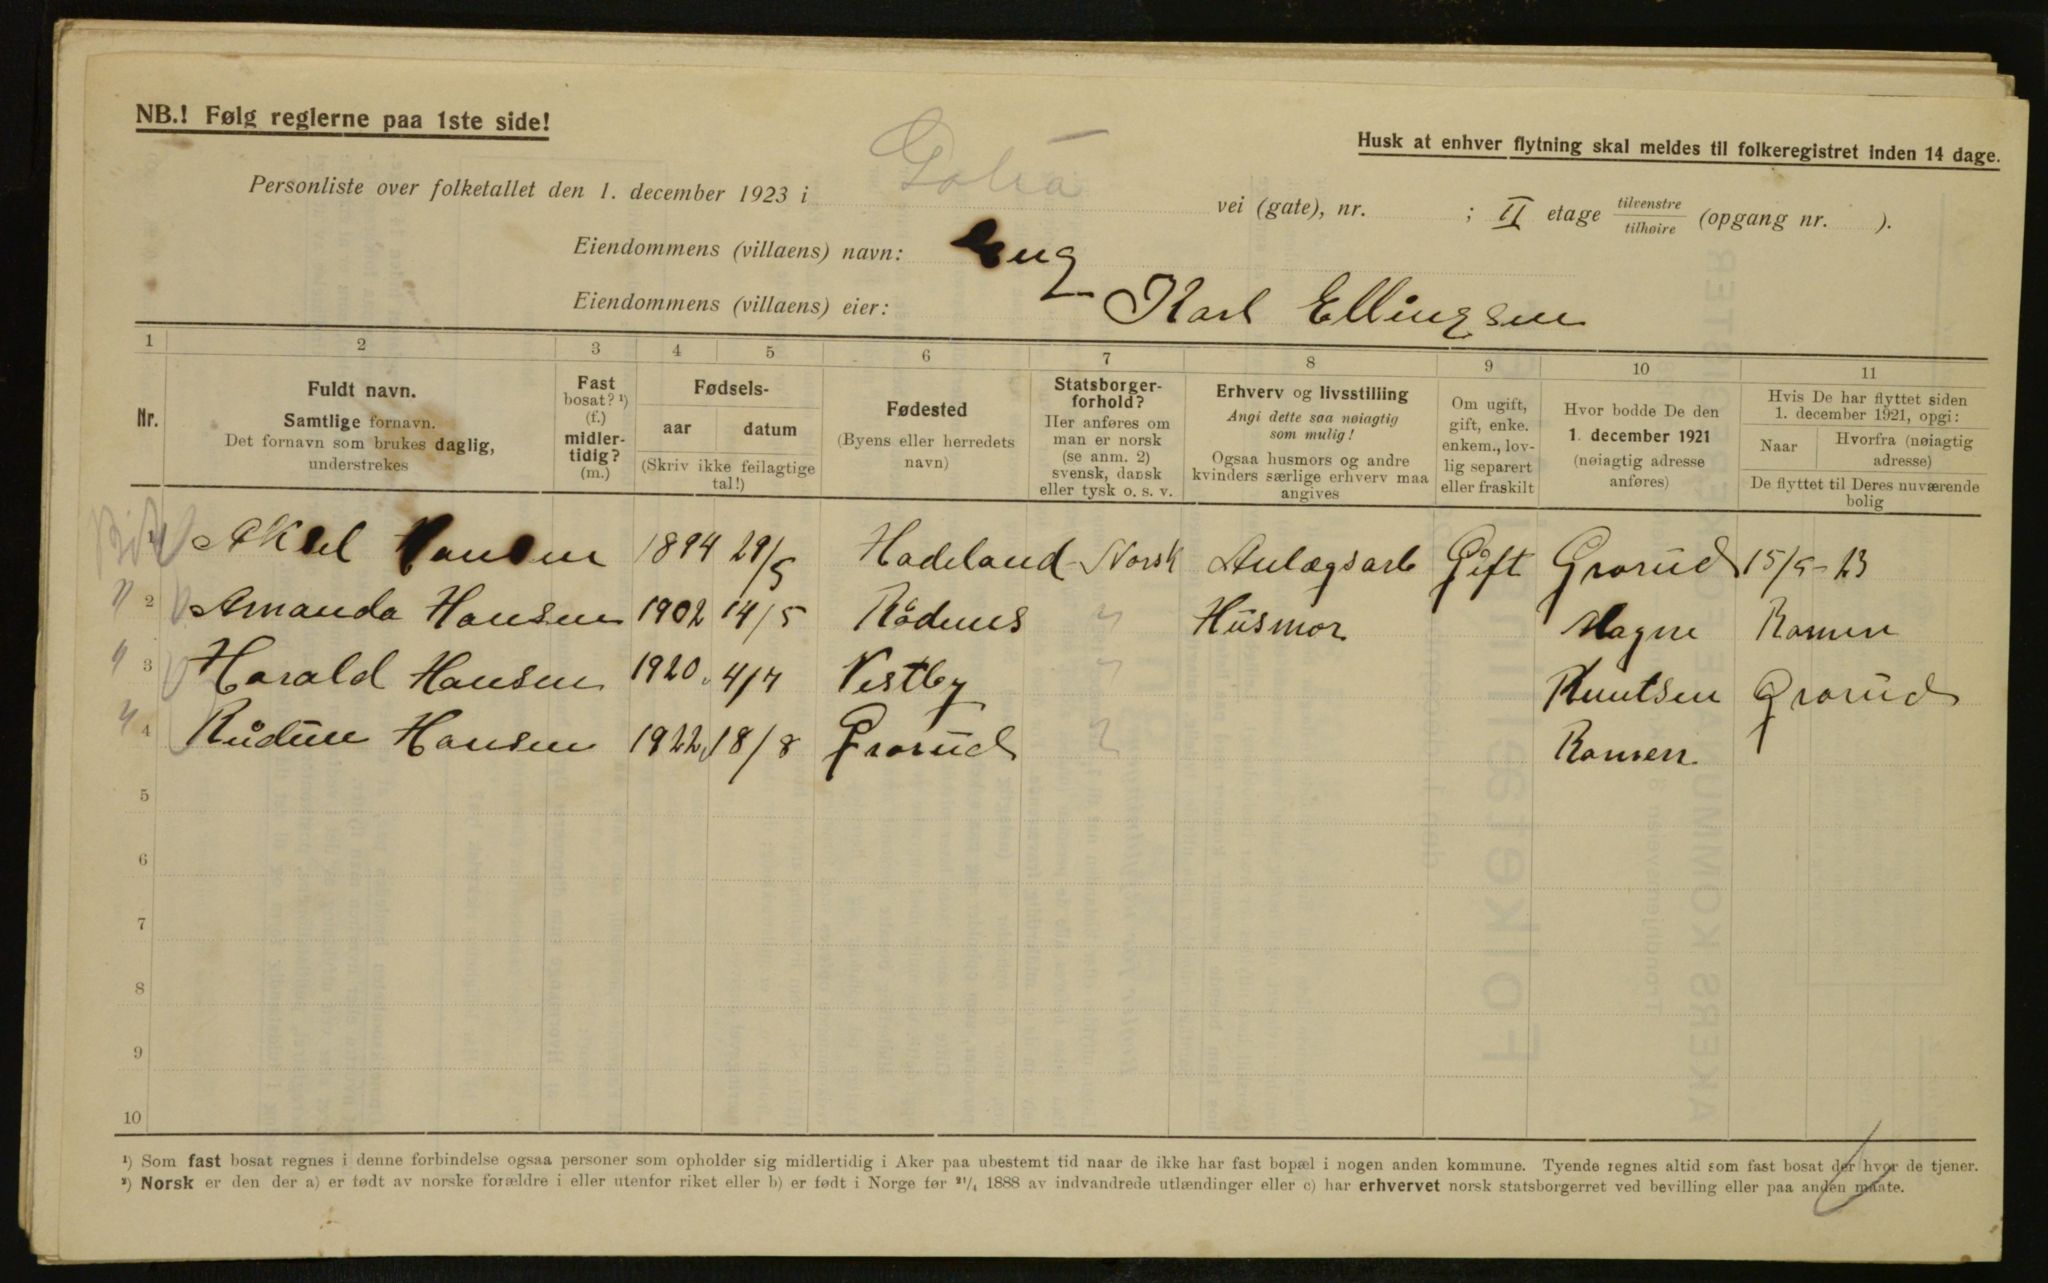 NB.! Følg reglerne paa 1ste side!
Husk at enhver flytning skal meldes til folkeregistret inden 14 dage.
Personliste over folketallet den 1. december 1923 i vei (gate), nr. ; II etage tilvenstre tilhøire (opgang nr. ).
Eiendommens (villaens) navn: Eng
Eiendommens (villaens) eier: Karl Ellingsen
1 2 3 4 5 6 7 8 9 10 11
Nr.
Fuldt navn.
Samtlige fornavn.
Det fornavn som brukes daglig,
understrekes
Fast
bosat? ¹)
(f.)
midler-
tidig?
(m.)
Fødsels-
aar datum
(Skriv ikke feilagtige
tal!)
Fødested
(Byens eller herredets
navn)
Statsborger-
forhold?
Her anføres om
man er norsk
(se anm. 2)
svensk, dansk
eller tysk o. s. v.
Erhverv og livsstilling
Angi dette saa nøiagtig
som mulig!
Ogsaa husmors og andre
kvinders særlige erhverv maa
angives
Om ugift,
gift, enke.
enkem., lov-
lig separert
eller fraskilt
Hvor bodde De den
1. december 1921
(nøiagtig adresse
anføres)
Hvis De har flyttet siden
1. december 1921, opgi:
Naar
Hvorfra (nøiagtig
adresse)
De flyttet til Deres nuværende
bolig
1 Aksel Hansen 1894 29/5 Hadeland Norsk Anlægsarb Gift Grorud 15/9-23
2 Amanda Hansen 1902 14/5 Rådenes " Husmor Magne Ramen
3 Harald Hansen 1920. 4/7 Vestby " Knutsen Grorud
4 Raudun Hansen 1922 18/8 Grorud " Ramen
5
6
7
8
9
10
¹) Som fast bosat regnes i denne forbindelse ogsaa personer som opholder sig midlertidig i Aker paa ubestemt tid naar de ikke har fast bopæl i nogen anden kommune. Tyende regnes altid som fast bosat der hvor de tjener.
²) Norsk er den der a) er født av norske forældre i eller utenfor riket eller b) er født i Norge før ²¹/₄ 1888 av indvandrede utlændinger eller c) har erhvervet norsk statsborgerret ved bevilling eller paa anden maate.